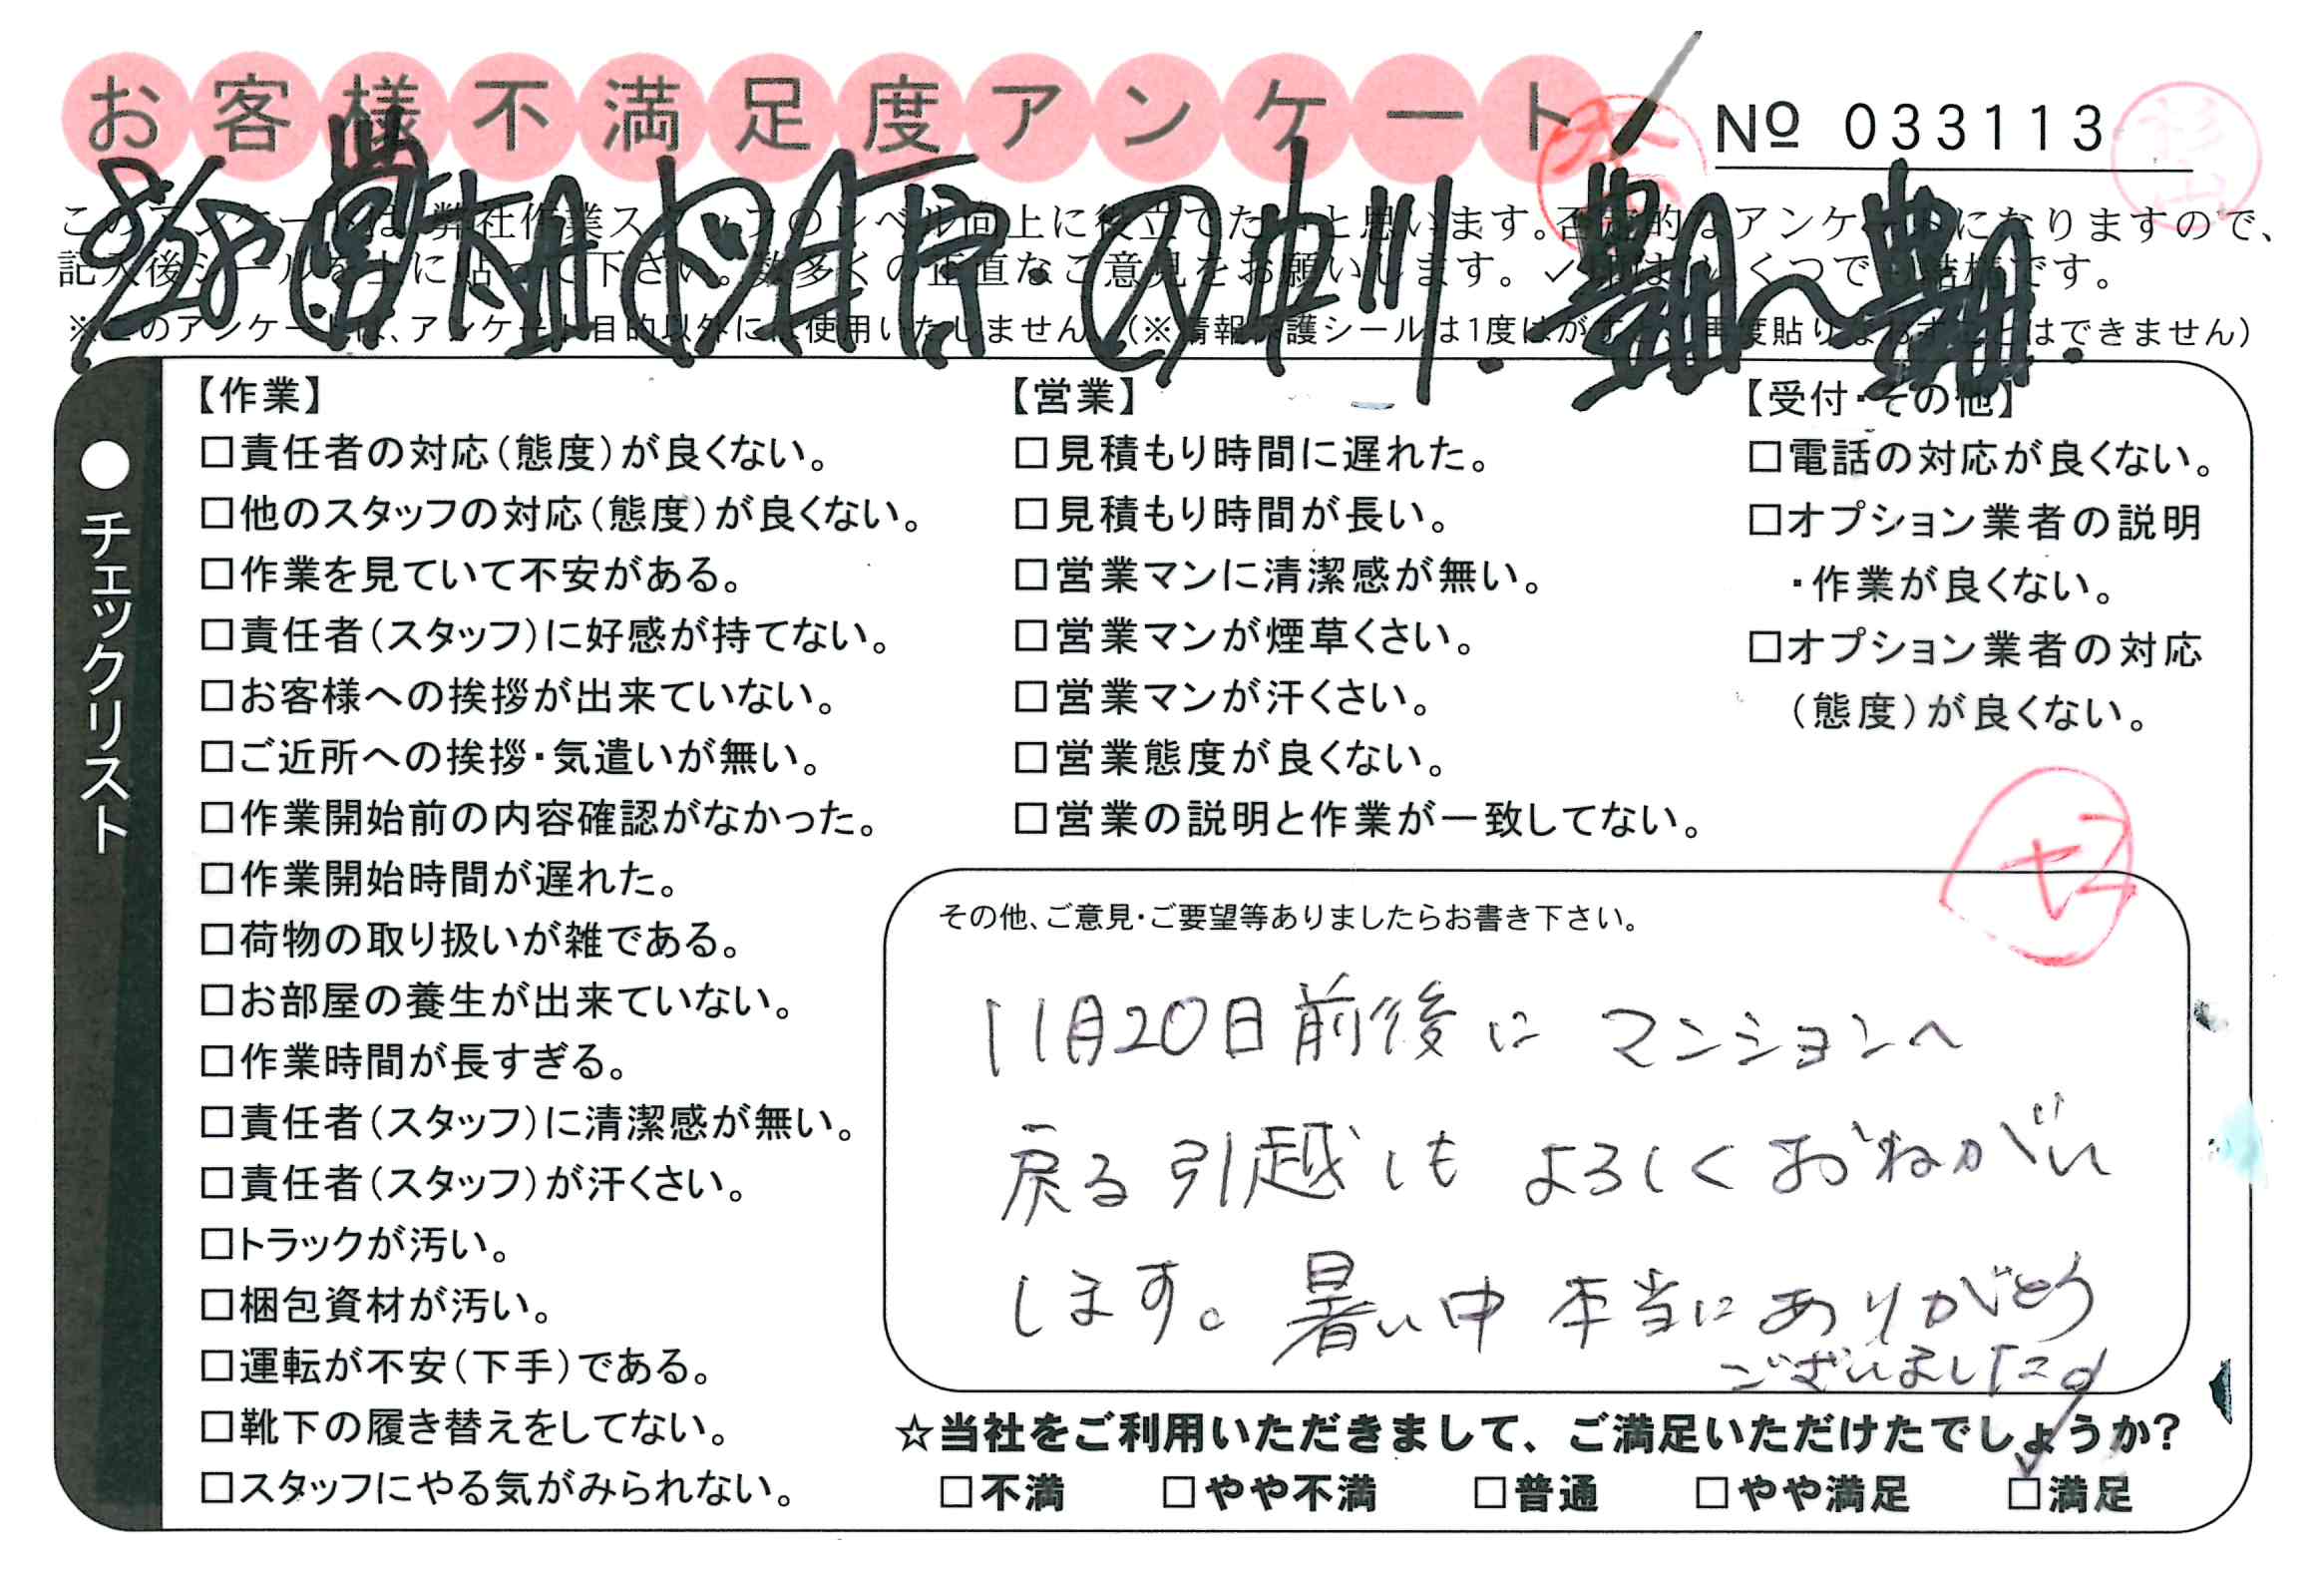 お客様不満足度アンケート
№ 033113
杉山
このアンケートは、弊社作業スタッフのレベル向上に役立てたいと思います。否定的なアンケートになりますので、
記入後シールを上に貼って下さい。数多くの正直なご意見をお願いします。✓印はいくつでも結構です。
※このアンケートは、アンケート目的以外には使用いたしません。(※情報保護シールは1度はがすと、再度貼りなおすことはできません)
8/28
●チェックリスト
【作業】
□責任者の対応(態度)が良くない。
□他のスタッフの対応(態度)が良くない。
□作業を見ていて不安がある。
□責任者(スタッフ)に好感が持てない。
□お客様への挨拶が出来ていない。
□ご近所への挨拶・気遣いが無い。
□作業開始前の内容確認がなかった。
□作業開始時間が遅れた。
□荷物の取り扱いが雑である。
□お部屋の養生が出来ていない。
□作業時間が長すぎる。
□責任者(スタッフ)に清潔感が無い。
□責任者(スタッフ)が汗くさい。
□トラックが汚い。
□梱包資材が汚い。
□運転が不安(下手)である。
□靴下の履き替えをしてない。
□スタッフにやる気がみられない。
【営業】
□見積もり時間に遅れた。
□見積もり時間が長い。
□営業マンに清潔感が無い。
□営業マンが煙草くさい。
□営業マンが汗くさい。
□営業態度が良くない。
□営業の説明と作業が一致してない。
【受付・その他】
□電話の対応が良くない。
□オプション業者の説明
・作業が良くない。
□オプション業者の対応
(態度)が良くない。
その他、ご意見・ご要望等ありましたらお書き下さい。
11月20日前後に マンションへ
戻る引越しも よろしくおねがい
します。暑い中 本当にありがとう
ございました。
☆当社をご利用いただきまして、ご満足いただけたでしょうか?
□不満 □やや不満 □普通 □やや満足 ☑満足